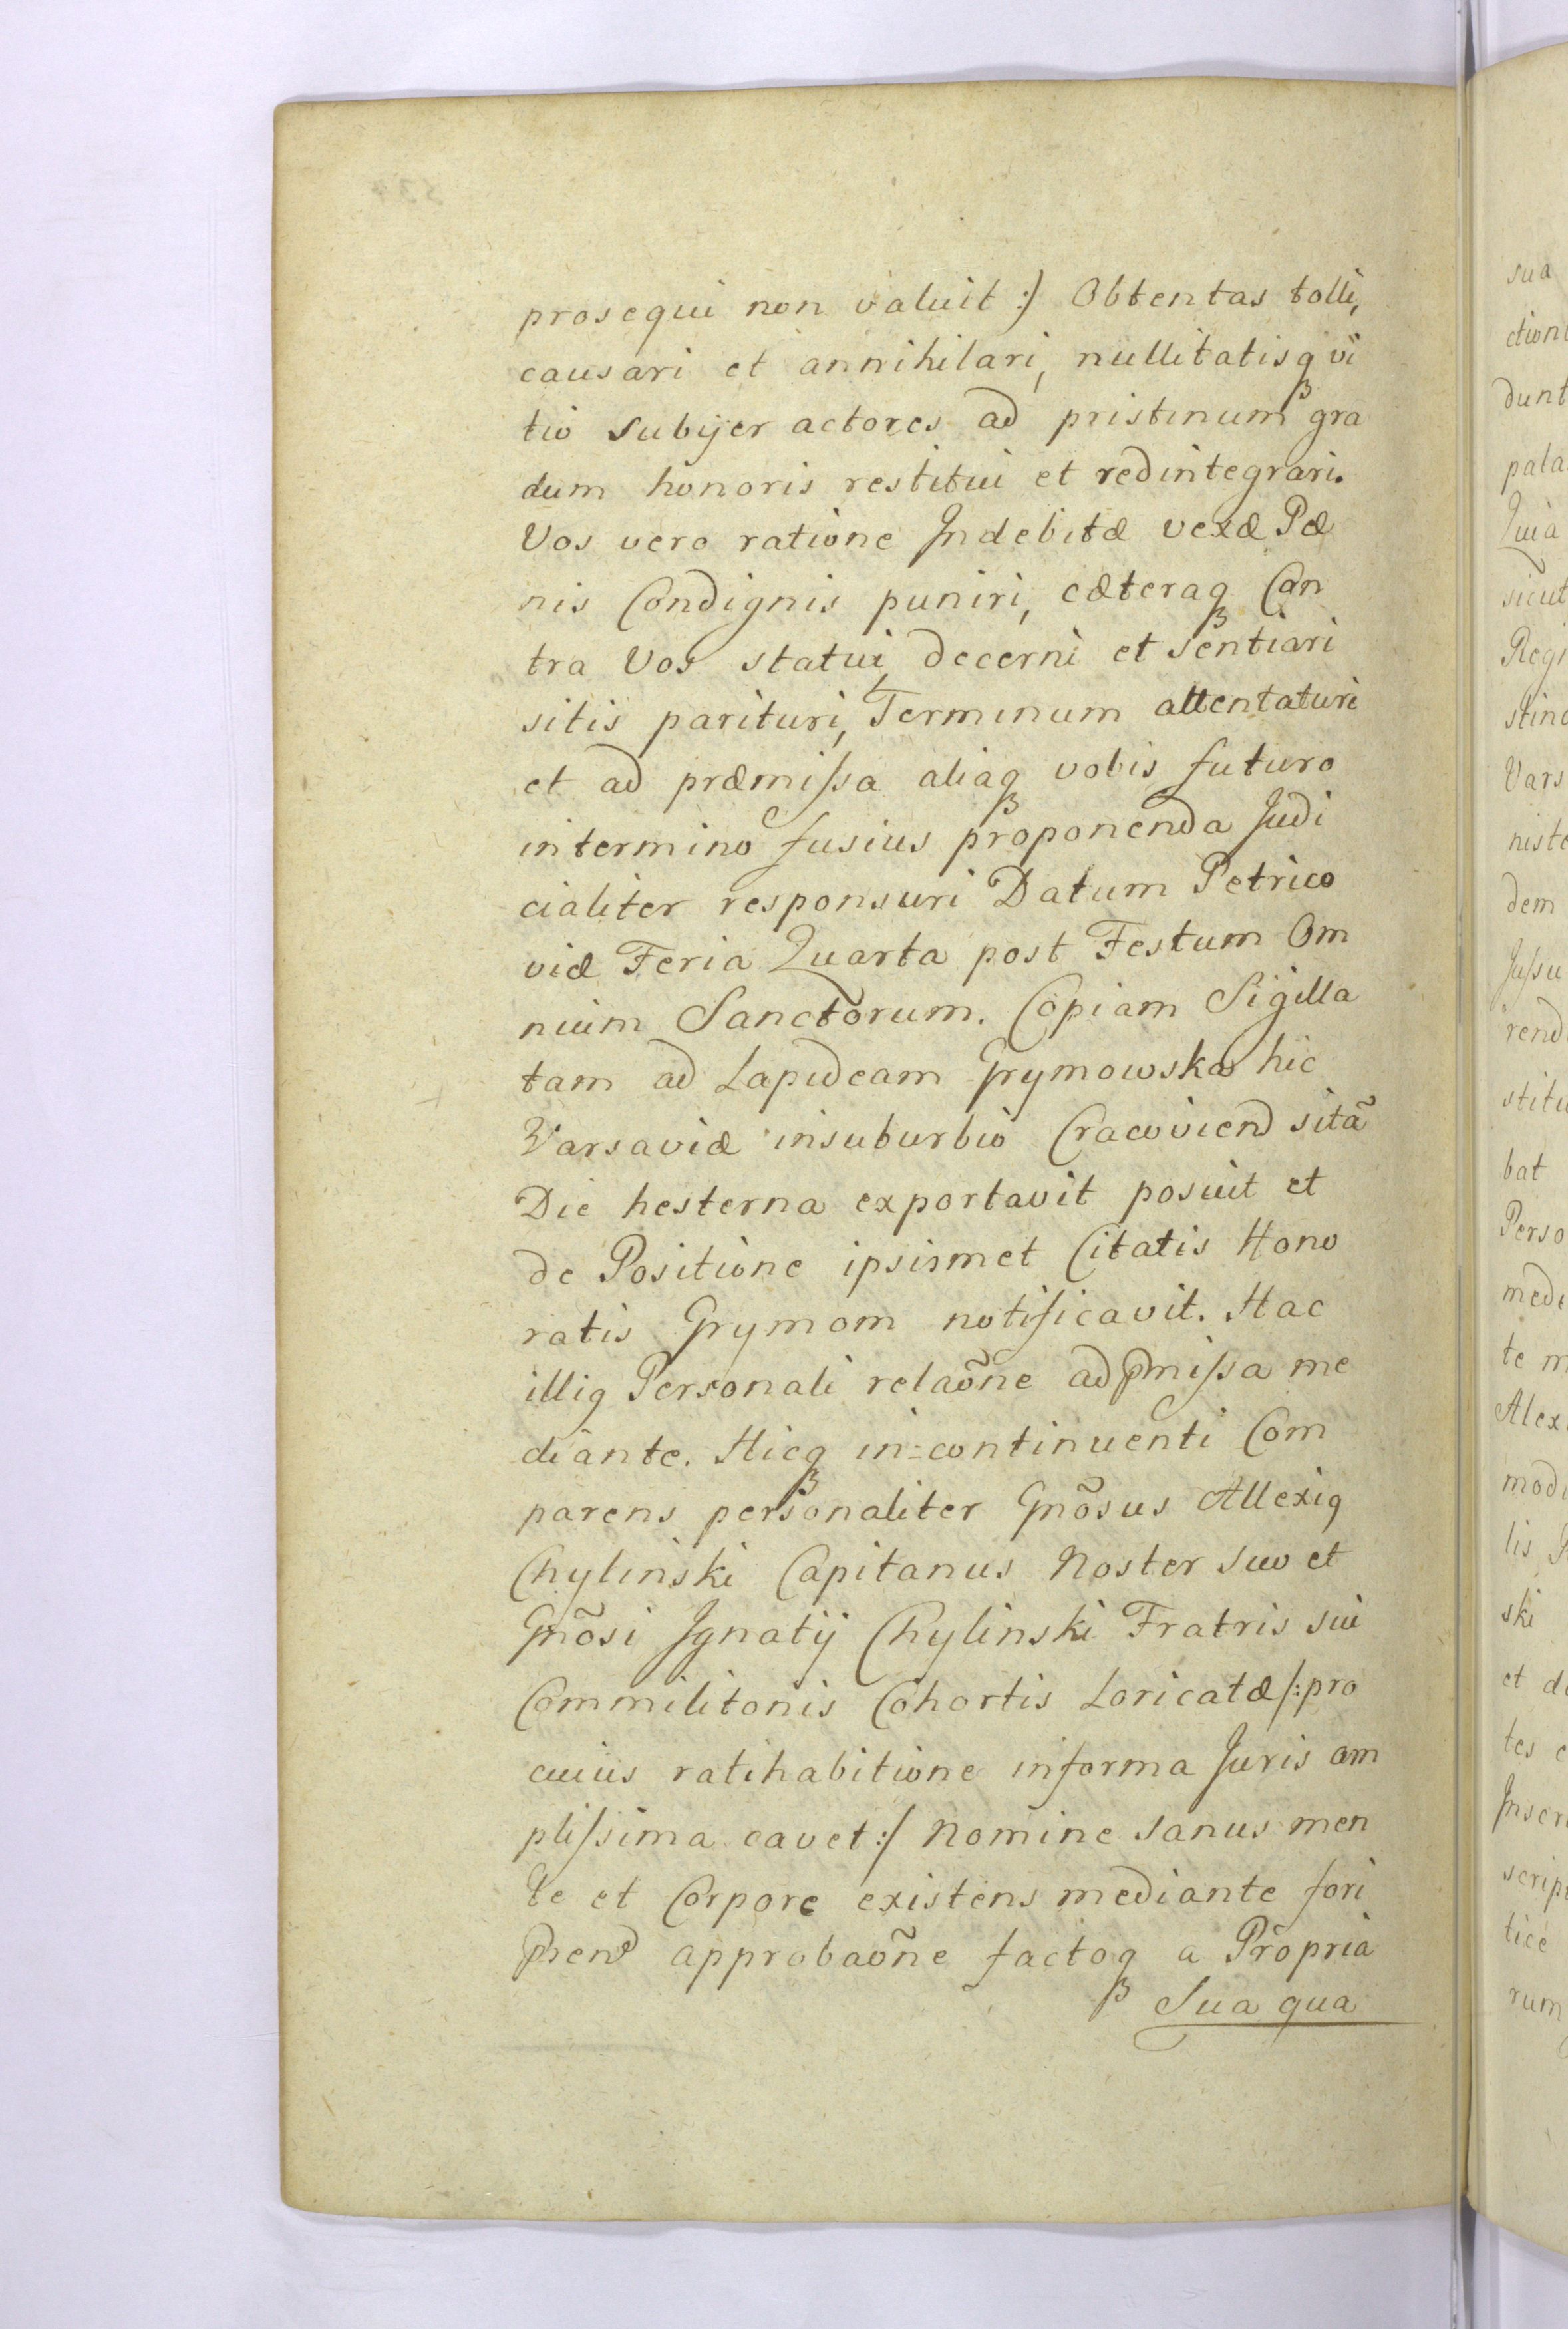 prosequi non valuit :/ Obtentas tolli,
causari et annihilari, nullitatisqꝫ vi
tio subijer actores ad pristinum gra
dum honoris restitui et redintegrari.
Vos vero ratione Indebitæ vexæ Pæ
nis Condignis puniri, cæteraqꝫ Con
tra Vos statui, decerni et sentiari
sitis parituri, Terminum attentaturi
et ad præmissa aliaqꝫ vobis futuro
in termino fusius proponenda Judi
cialiter responsuri Datum Petrico
viæ Feria Quarta post Festum Om
nium Sanctõrum. Copiam Sigilla
tam ad Lapideam Grymowska hic
Varsaviæ insuburbio Cracoviend sitã
Die hesterna exportavit posuit et
de Positione ipsismet Citatis Hono
ratis Grymom notificavit. Hac
illiq Personali relaõne ad pmissa me
diante. Hicqꝫ in=continuenti Com
parens personaliter Gnõsus Allexiq
Chylinski Capitanus Noster suo et
Gnõsi Ignatij Chylinski Fratris sui
Commilitonis Cohortis Loricatæ /:pro
cuius ratihabitione informa Juris am
plissima cavet :/ Nomine sanus men
te et Corpore existens mediante fori
pñend approbaõne factoqꝫ a Propria
Sua qua
sua
dunt
pala
Quia
sicut
Regi
Vars
niste
dem
rend
stitu
bat
Perso
mede
te m
Alex.
modi
lis
ski
et d
tes
scrip
tice
rum